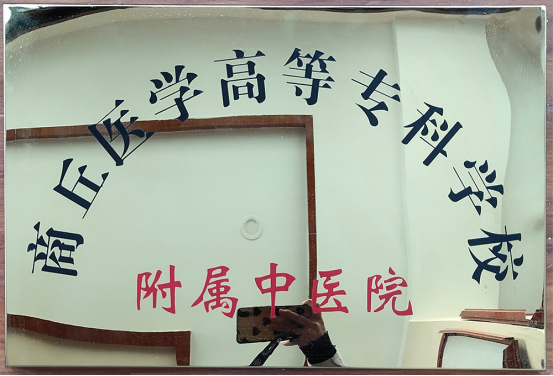 商丘医学高等专科学校
附属中医院